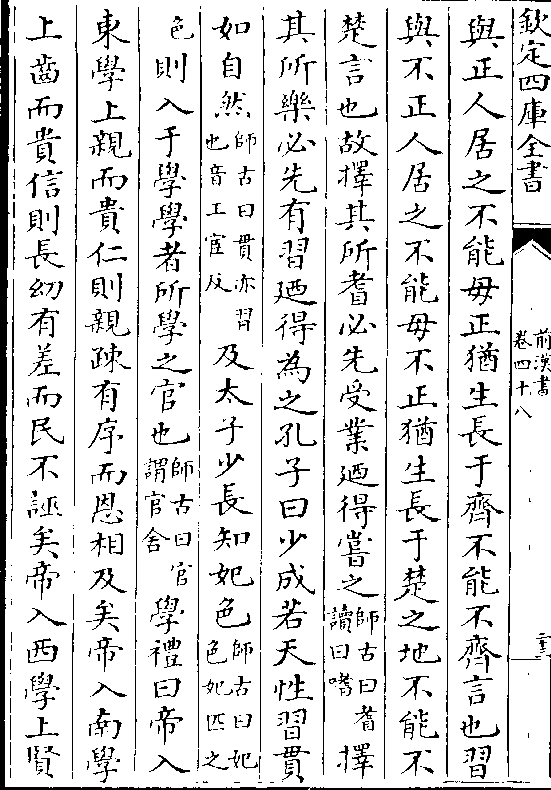 欽定四庫全書
前漢書
卷四十八
與正人居之不能毋正猶生長于齊不能不齊言也習
與不正人居之不能毋不正猶生長于楚之地不能不
楚言也故擇其所耆必先受業廼得嘗之師古曰耆讀曰嗜擇
其所樂必先有習廼得為之孔子曰少成若天性習貫
如自然師古曰貫亦習也音工宦反及太子少長知妃色師古曰妃色妃匹之
色則入于學學者所學之官也師古曰官謂官舍學禮曰帝入
東學上親而貴仁則親疎有序而恩相及矣帝入南學
上齒而貴信則長幼有差而民不誣矣帝入西學上賢